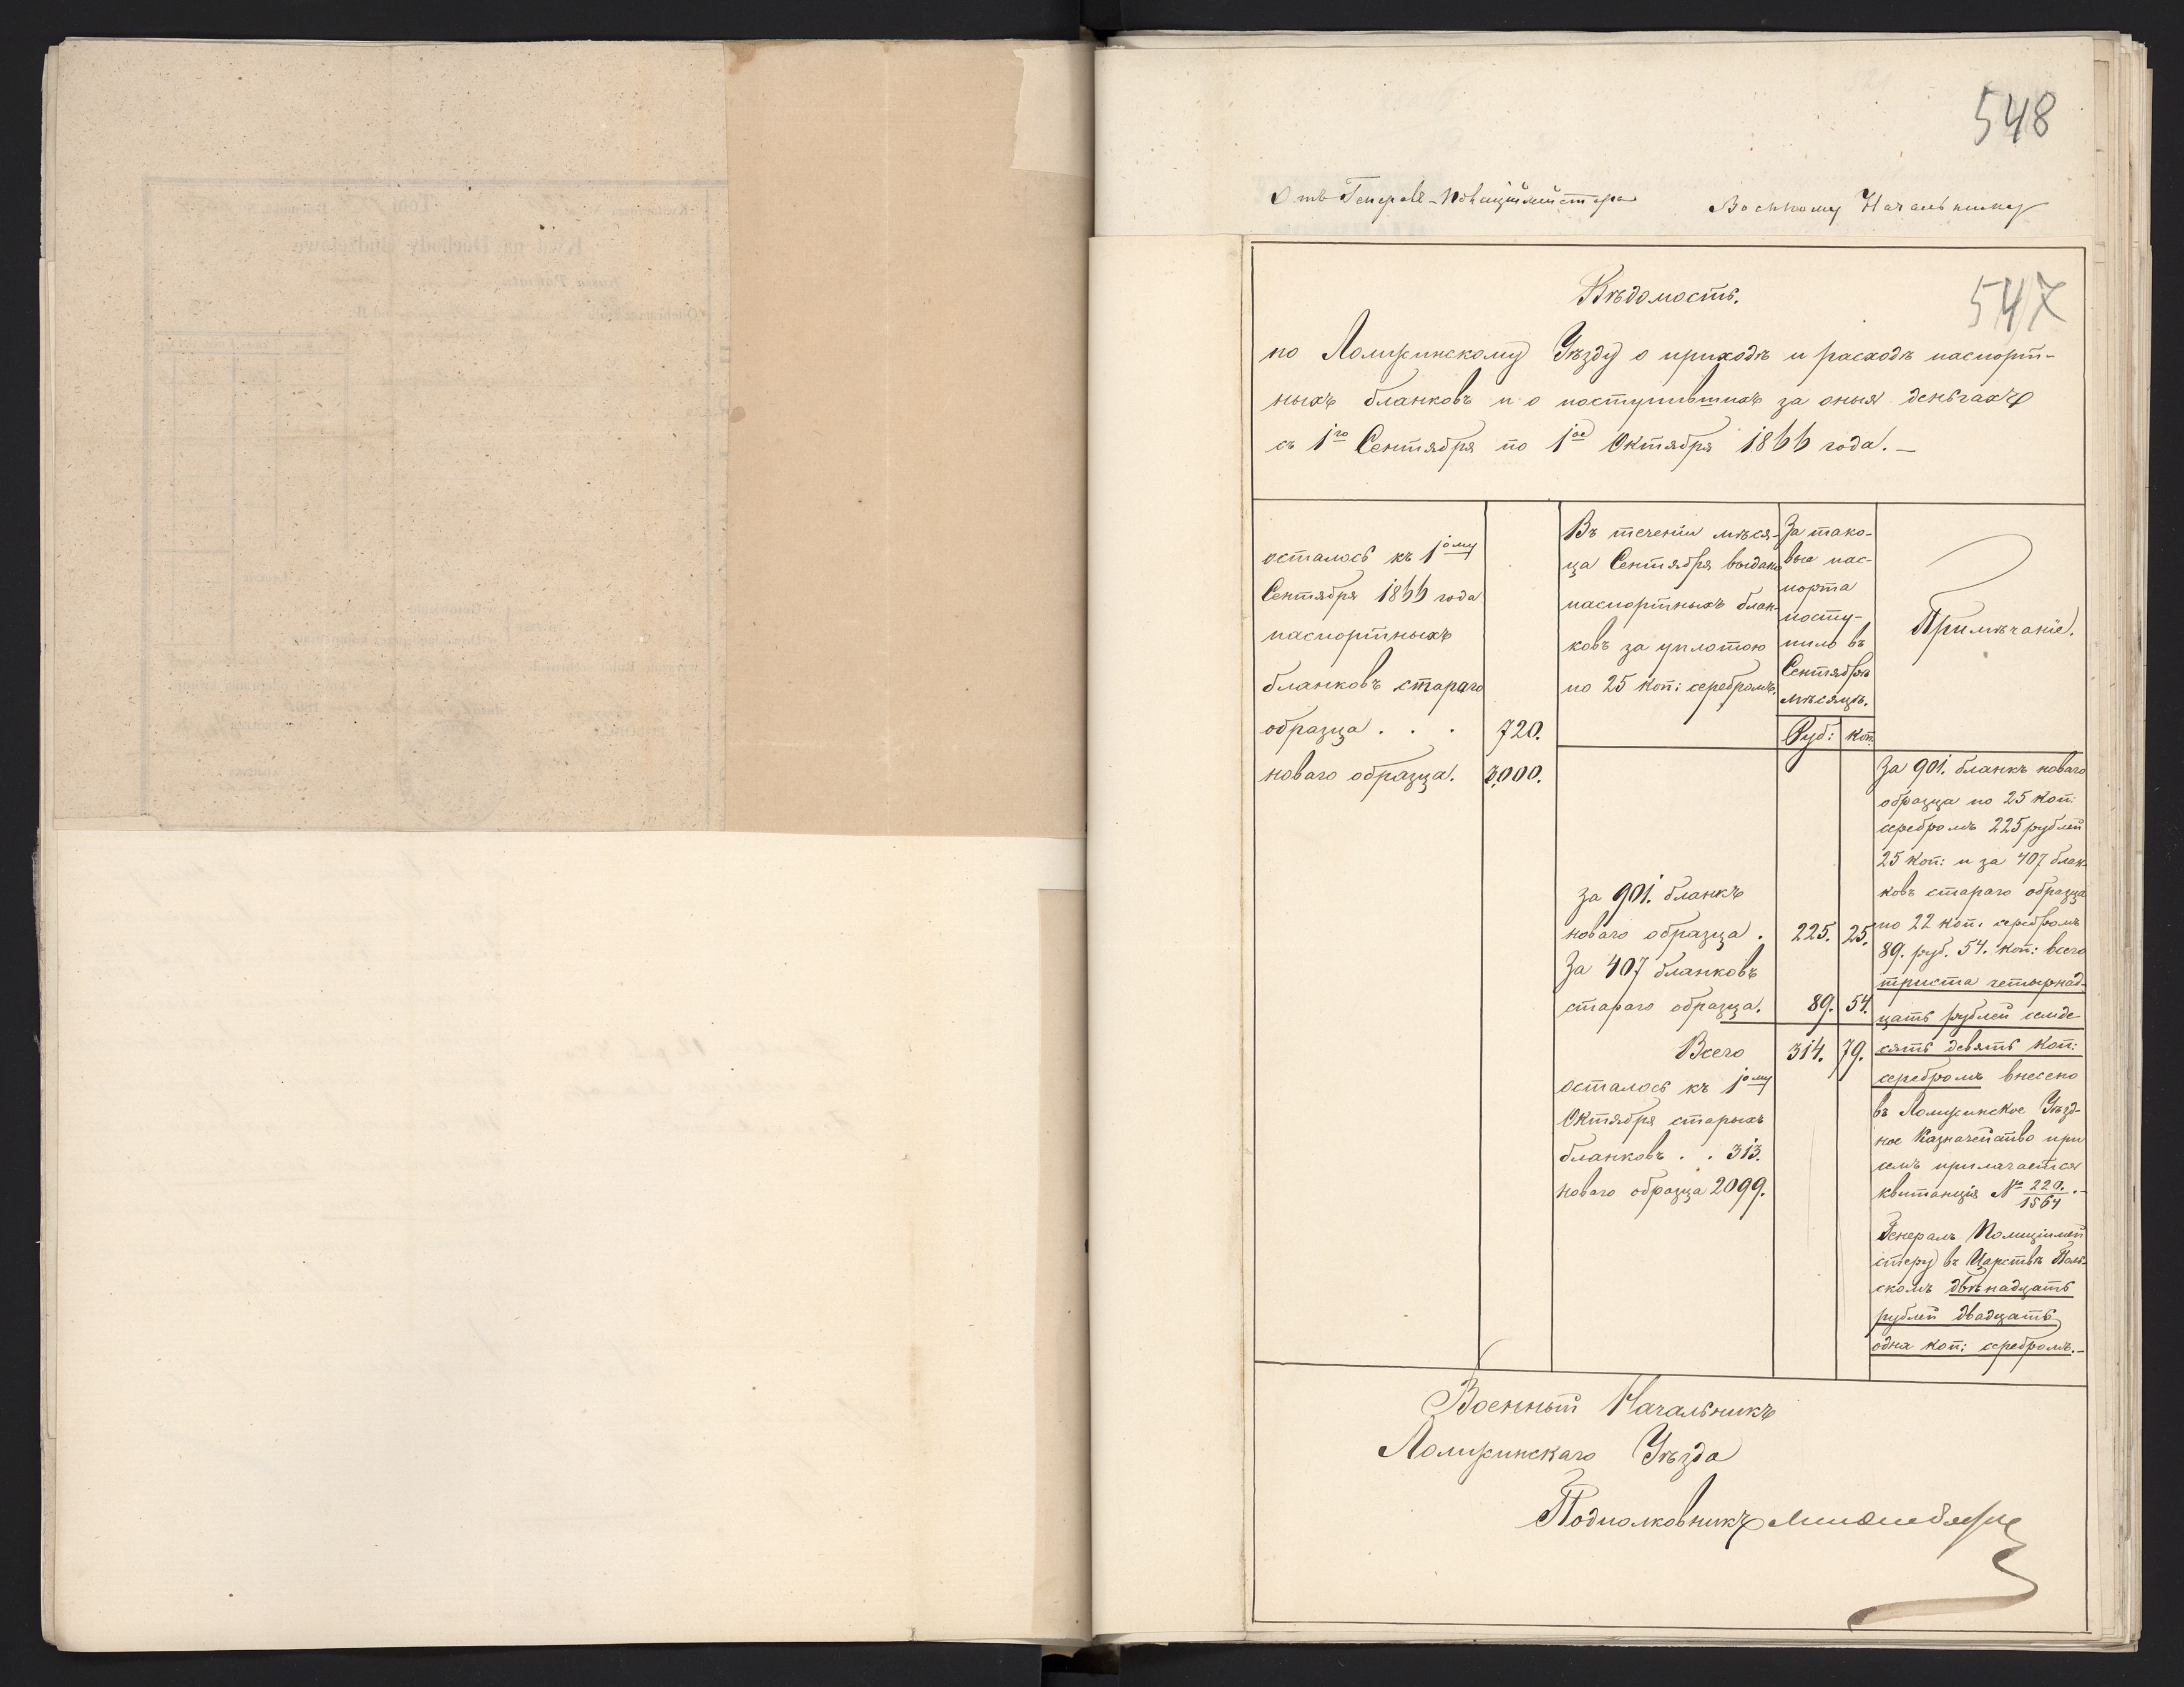 548
Отъ Генералъ-Полиціймейстера Военному Начальнику
Вѣдомость.
547
по Ломжинскому Уѣзду о приходѣ и расходѣ паспорт-
ныхъ бланковъ и о поступившихъ за оныя деньгахъ
съ 1го Сентября по 1ое Октября 1866 года. —
осталось къ 1ому
Сентября 1866 года
паспортныхъ
бланковъ стараго
образца . . . 720.
новаго образца. 3,000.
Въ теченіи мѣся-
ца Сентября выдано
паспортныхъ блан-
ковъ за уплотою
по 25 коп: серебромъ.
За тако-
вые пас-
порта
посту-
пило въ
Сентябрѣ
мѣсяцѣ.
Руб: коп.
Примѣчаніе.
за 901. бланкъ
новаго образца . 225. 25.
За 407 бланковъ
стараго образца. 89. 54.
Всего 314. 79.
осталось къ 1ому
Октября старыхъ
бланковъ . . 313.
новаго образца 2099.
За 901. бланкъ новаго
образца по 25 коп:
серебромъ 225 рублей
25 коп: и за 407 блан-
ковъ стараго образца
по 22 коп. серебромъ
89. руб. 54. коп: всего
триста четырнад-
цать рублей семде-
сятъ девять коп:
серебромъ внесено
въ Ломжинское Уѣзд-
ное Казначейство при
семъ прилагается
квитанція № 220./1564 .-
Генералъ Полиціймей-
стеру въ Царствѣ Поль-
скомъ двѣнадцать
рублей двадцать
одна коп: серебромъ.-
Военный Начальникъ
Ломжинскаго Уѣзда
Подполковникъ